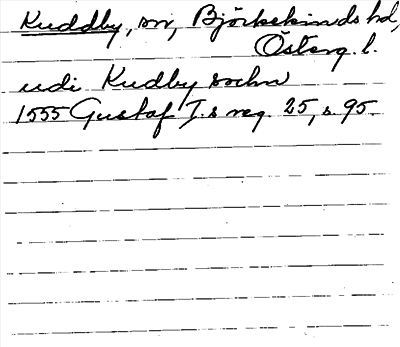 Kuddby, sn, Björkekinds hd,
Österg. l.
udi Kudby sochn
1555 Gustaf I.s reg. 25, s. 95.